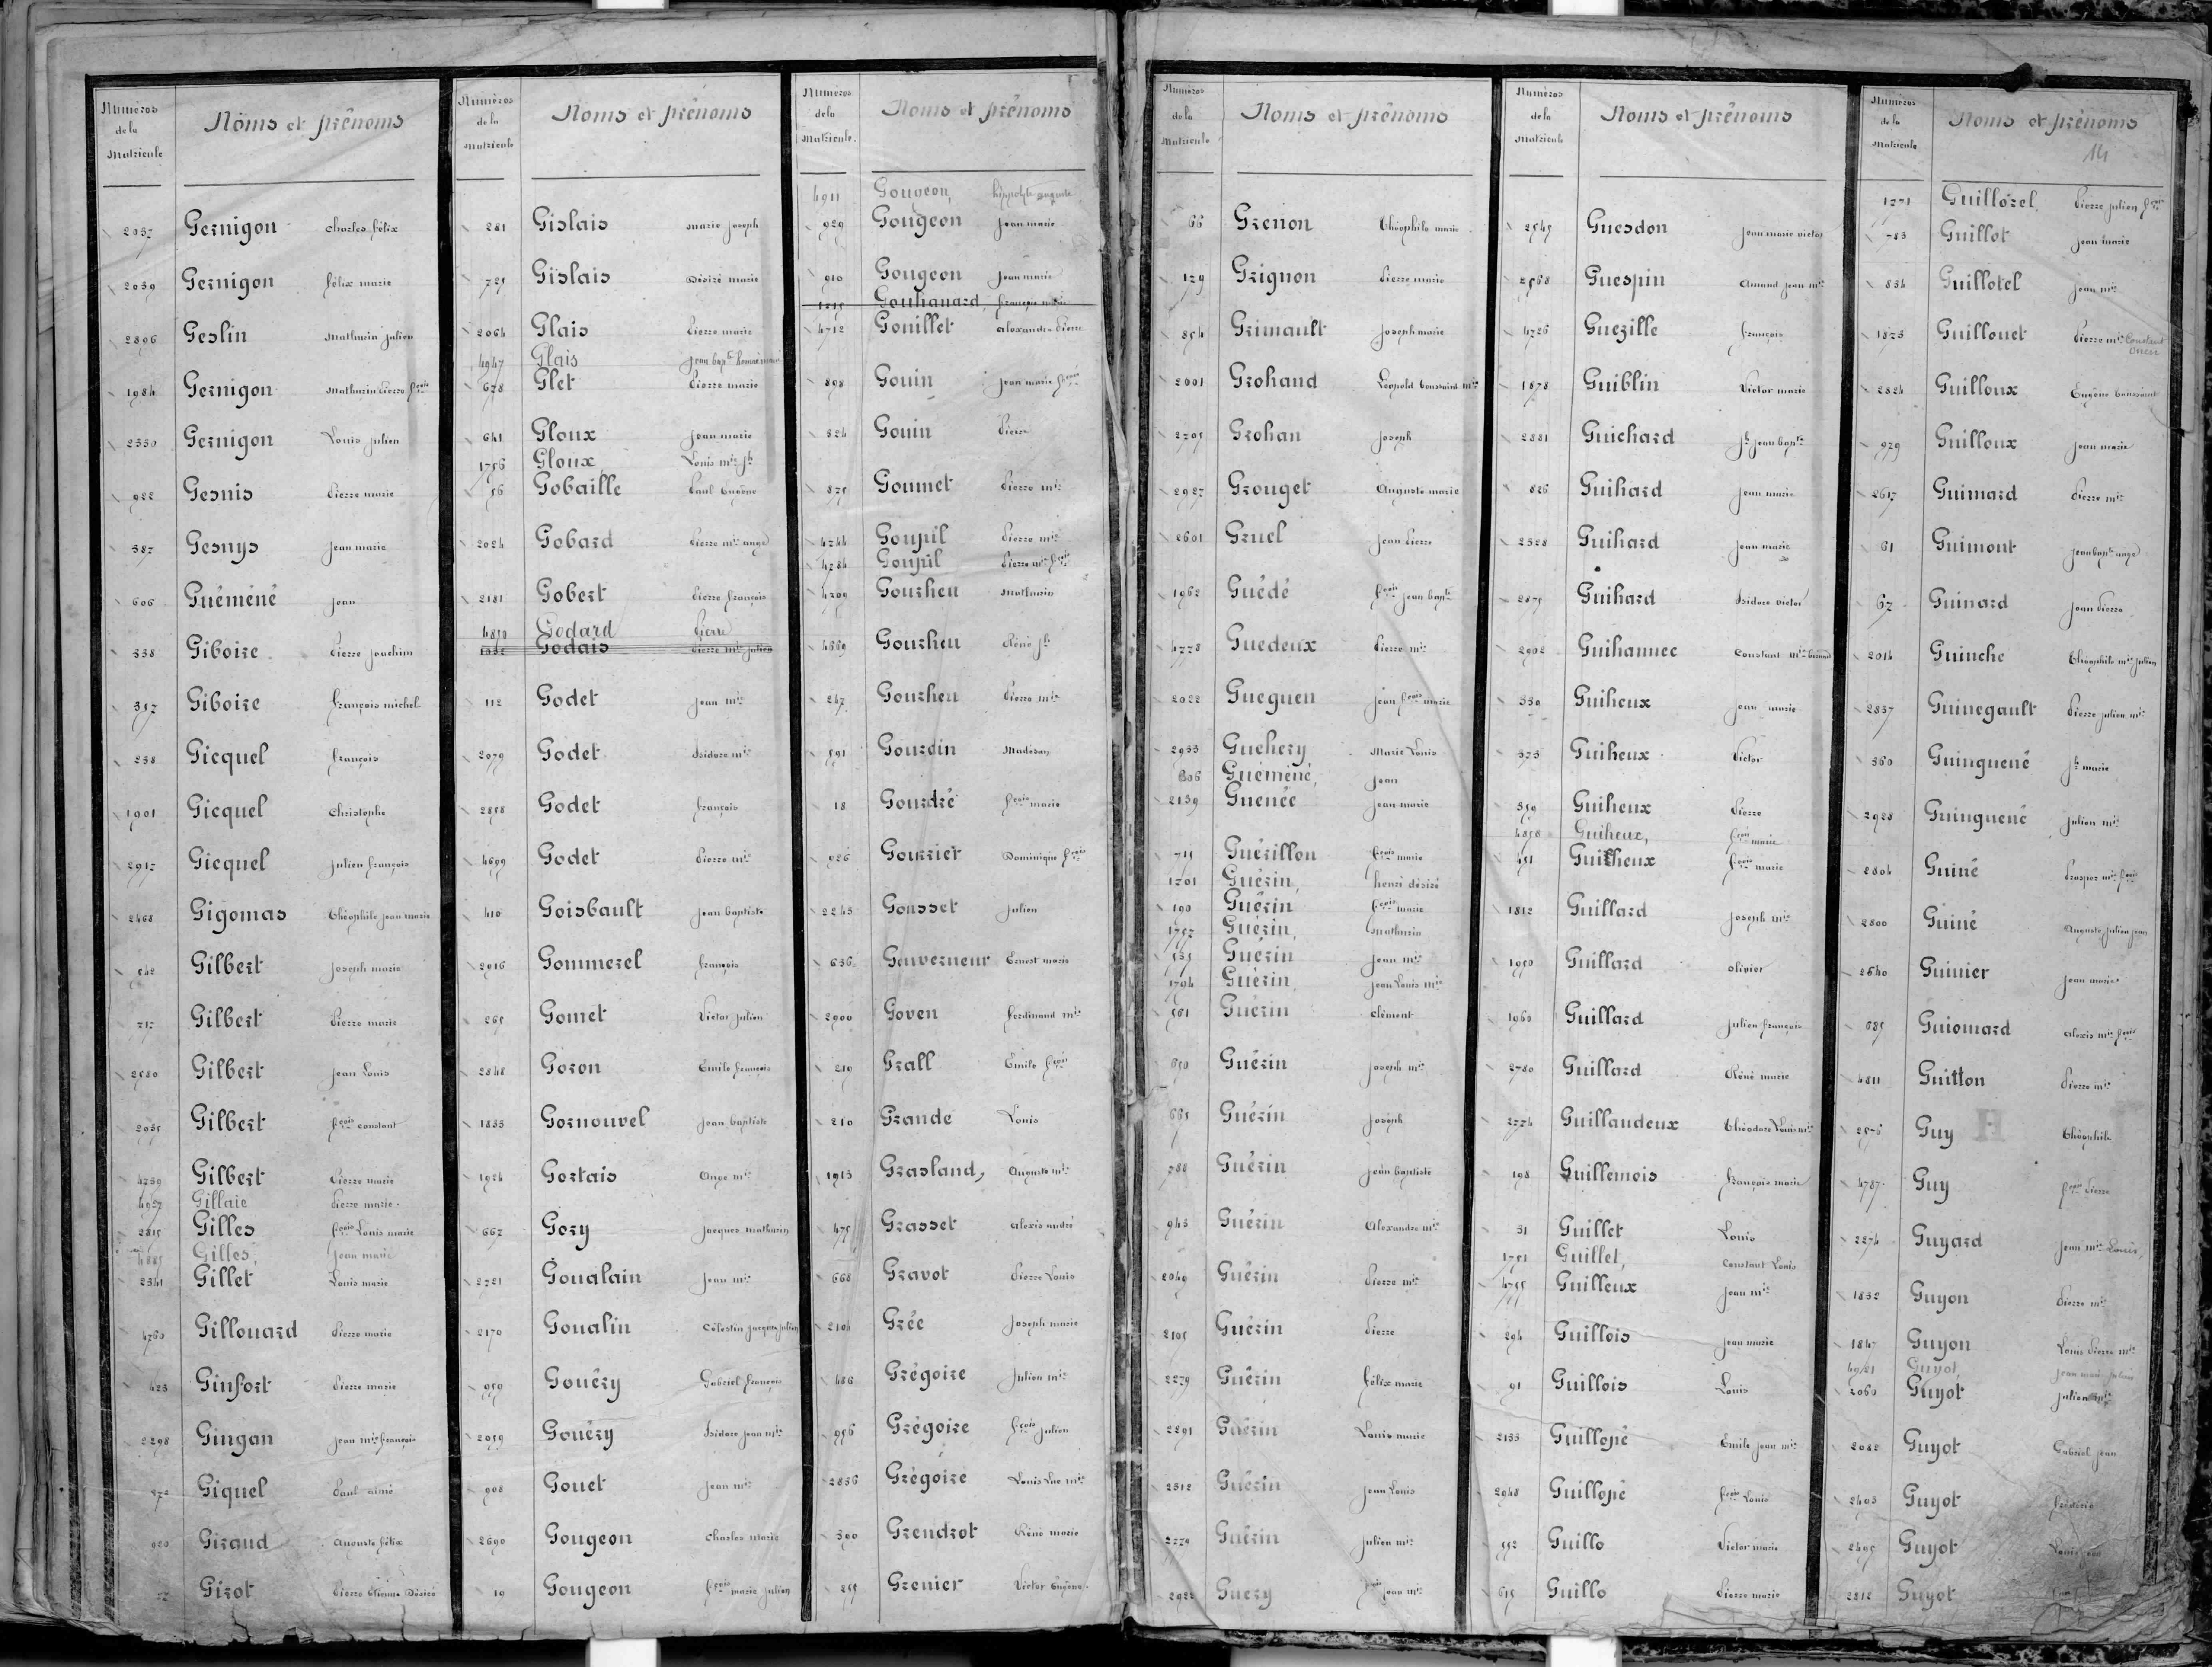 Numéros de la Matricule Noms et prénoms
2037 Gernigon Charles félix
2039 Gernigon félix marie
2896 Geslin Mathurin julien
1984 Gernigon Mathurin Pierre fçois
2330 Gernigon Louis julien
922 Gesnis Pierre marie
387 Gesnys Jean marie
606 Guéméné Jean
338 Giboire Pierre joachim
357 Giboire françois michel
238 Gicquel françois
1901 Gicquel Christophe
2917 Gicquel Julien françois
2468 Gigomas Théophile jean marie
542 Gilbert Joseph marie
717 Gilbert Pierre marie
2580 Gilbert Jean Louis
2035 Gilbert fçois constant
4759 Gilbert Pierre marie
4957 Gillaie Pierre marie
2815 Gilles fçois Louis marie
4885 Gilles, Jean marie
2341 Gillet Louis marie
4760 Gillouard Pierre marie
423 Ginfort Pierre marie
2298 Gingan Jean mie françois
272 Giquel Paul aimé
920 Giraud Auguste félix
Girot Pierre Etienne Désiré
Numéros de la Matricule Noms et prénoms
281 Gislais Marie Joseph
725 Gislais Désiré marie
2064 Glais Pierre marie
4947 Glais Jean bapte
678 Glet Pierre marie
641 Gloux Jean marie
1756 Gloux, Louis mie jh
56 Gobaille Paul Eugène
2024 Gobard Pierre mie ange
2181 Gobert Pierre françois
4850 Godard Pierre
Godais Pierre mie julien
112 Godet Jean mie
2079 Godet Isidore mie
2858 Godet françois
4699 Godet Pierre mie
410 Goisbault Jean baptiste
2916 Gommerel françois
265 Gomet Victor julien
2848 Goron Emile françois
1833 Gornouvel Jean baptiste
1924 Gortais Ange mie
667 Gory Jacques mathurin
2721 Goualain Jean mie
2170 Goualin Célestin jacques julien
959 Gouëry Gabriel françois
2059 Gouëry Isidore jean mie
908 Gouet Jean mie
2690 Gougeon Charles marie
19 Gougeon fçois marie julien
Numéros de la Matricule. Noms et prénoms
4911 Gougeon, hippolyte auguste
929 Gougeon Jean marie
910 Gougeon Jean marie
1715 Gouhanard, françois
4712 Gouillet alexandre Pierre
898 Gouin Jean marie fçois
324 Gouin Pierre
875 Goumet Pierre mie
4744 Goupil Pierre mie
4784 Goupil Pierre mie fçois
4709 Gourheu Mathurin
4669 Gourheu Réné jh
247 Gourheu Pierre mie
591 Gourdin
18 Gourdré fçois marie
926 Gourrier Dominique fçois
2243 Gousset Julien
636 Gouverneur Ernest marie
2900 Goven ferdinand mie
219 Grall Emile fçois
210 Grande Louis
1913 Grasland, Auguste mie
475 Grasset Alexis andré
668 Gravot Pierre Louis
2104 Grée Joseph marie
486 Grégoire Julien mie
956 Grégoire fçois Julien
2836 Grégoire Louis Luc mie
390 Grendrot Réné marie
255 Grenier Victor Eugène.
Numéros de la Matricule Noms et prénoms
66 Grenon Théophile marie
129 Grignon Pierre marie
854 Grimault Joseph marie
2001 Grohand Léopold toussaint mie
2705 Grohan Joseph
2927 Grouget Auguste marie
2601 Gruel Jean Pierre
1962 Guédé fçois jean bapte
4778 Guedeux Pierre mie
2022 Gueguen Jean fçois marie
2933 Guehery Marie Louis
606 Guéméné, Jean
2139 Guenée Jean marie
715 Guérillon fçois marie
1701 Guérin, henri désiré
190 Guérin fçois marie
1757 Guérin, Mathurin
535 Guérin Jean mie
1794 Guérin, Jean Louis mie
561 Guérin Clément
650 Guérin Joseph mie
665 Guérin Joseph
788 Guérin Jean baptiste
943 Guérin Alexandre mie
2049 Guérin Pierre mie
2105 Guérin Pierre
2279 Guérin félix marie
2291 Guérin Louis marie
2312 Guérin Jean Louis
2770 Guérin Julien mie
2922 Guery fçois jean mie
Numéros de la Matricule Noms et prénoms
2545 Guesdon Jean marie victor
2568 Guespin Amand jean mie
4726 Guezille françois
1878 Guiblin Victor marie
2881 Guichard jh jean bapte
826 Guihard Jean marie
2328 Guihard Jean marie
2875 Guihard Isidore victor
2902 Guihannec Constant mie
330 Guiheux Jean marie
373 Guiheux Victor
359 Guiheux Pierre
4858 Guiheux, fçois marie
451 Guilheux fçois marie
1812 Guillard Joseph mie
1950 Guillard Olivier
1960 Guillard Julien françois
2780 Guillard Réné marie
2774 Guillaudeux Théodore Louis mie
198 Guillemois françois marie
31 Guillet Louis
1751 Guillet, Constant Louis
4755 Guilleux Jean mie
294 Guillois Jean marie
91 Guillois Louis
2133 Guillopé Emile jean mie
2948 Guillopé fçois Louis
552 Guillo Victor marie
615 Guillo Pierre marie
Numéros de la Matricule Noms et prénoms
14
1771 Guillorel Pierre julien fçois
783 Guillot Jean marie
834 Guillotel Jean mie
1873 Guillouet Pierre mie Constant
2824 Guilloux Eugène toussaint
979 Guilloux Jean marie
2617 Guimard Pierre mie
61 Guimont Jean bapte ange
67 Guinard Jean Pierre
2014 Guinche Théophile mie julien
2837 Guinegault Pierre julien mie
360 Guinguené jh marie
2928 Guinguené Julien mie
2804 Guiné Prosper mie fçois
2800 Guiné Auguste julien jean
2640 Guinier Jean marie
685 Guiomard Alexis mie fçois
4811 Guitton Pierre mie
2576 Guy Théophile
4787 Guy fçois Pierre
2274 Guyard Jean mie Louis,
1832 Guyon Pierre mie
1847 Guyon Louis Pierre mie
4921 Guyot, Jean marie julien
2060 Guyot Julien mie
2082 Guyot Gabriel jean
2403 Guyot frédéric
2495 Guyot
2812 Guyot